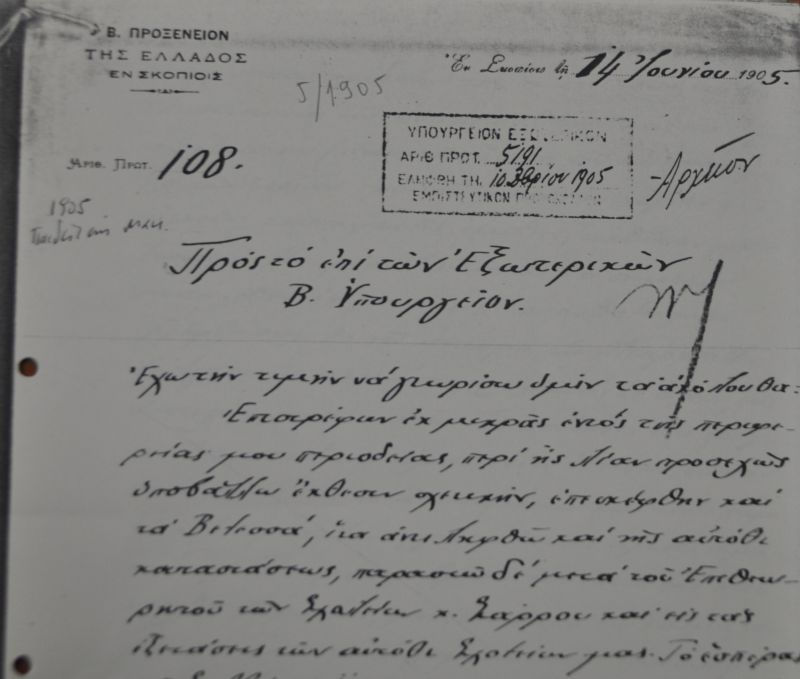 Β. ΠΡΟΞΕΝΕΙΟΝ
ΤΗΣ ΕΛΛΑΔΟΣ
ΕΝ ΣΚΟΠΙΟΙΣ
Ἐν Σκοπίοις τῇ 14 Ἰουνίου 1905.
5/1905
ΥΠΟΥΡΓΕΙΟΝ ΕΞΩΤΕΡΙΚΩΝ
ΑΡΙΘ ΠΡΩΤ. 5191
ΕΛΗΦΘΗ ΤΗ. 10 8βρίου 1905
ΕΜΠΙΣΤΕΥΤΙΚΟΝ
Ἀρχεῖον
Αριθ. Πρωτ. 108.
1905
Πρὸς τὸ ἐπὶ τῶν Ἐξωτερικῶν
Β. Ὑπουργεῖον.
Ἔχω τὴν τιμὴν νὰ γνωρίσω ὑμῖν τὰ ἀκόλουθα:
Ἐπιστρέφων ἐκ μικρᾶς ἐντὸς τῆς περιφε-
ρείας μου περιοδείας, περὶ ἧς λίαν προσεχῶς
ὑποβάλλω ἔκθεσιν σχετικήν, ἐπεσκέφθην καὶ
τὰ Βελεσσά, ἵνα ἀντιληφθῶ καὶ τῆς αὐτόθι
καταστάσεως, παραστῶ δὲ μετὰ τοῦ Ἐπιθεω-
ρητοῦ τῶν Σχολείων κ. Σάρρου καὶ εἰς τὰς
ἐξετάσεις τῶν αὐτόθι Σχολείων μας. Τὸ ἑσπέρας